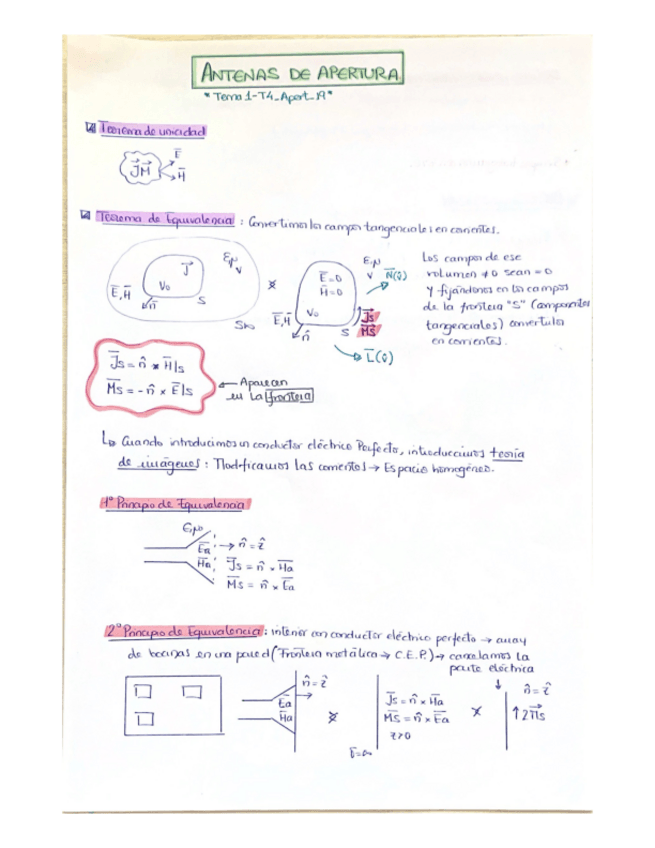 ANTENAS DE APERTURA
"Tema 1-T4_Apert_19"
Teorema de unicidad
J⃗ M⃗
E̅
H̅
Teorema de Equivalencia : Convertimos los campos tangenciales en corrientes.
J⃗
V₀
S
n̂
E̅, H̅
S∞
E̅=0
H̅=0
V₀
S
n̂
E̅, H̅
J̅s
M̅s
Los campos de ese
volumen ≠0 sean = 0
y fijándonos en los campos
de la frontera "S" (componentes
tangenciales) convertirla
en corrientes.
J̅s = n̂ × H̅|s
M̅s = - n̂ × E̅|s
← Aparecen
en la frontera
↳ Cuando introducimos un conductor eléctrico Perfecto, introduccimos teoría
de imágenes : Modificamos las corrientes → Espacio homogéneo.
1º Principio de Equivalencia
E̅a → n̂ = ẑ
H̅a J̅s = n̂ × H̅a
M̅s = n̂ × E̅a
2º Principio de Equivalencia : interior con conductor eléctrico perfecto → array
de bocinas en una pared (Frontera metálica → C.E.P.) → cancelamos la
parte eléctrica
n̂ = ẑ
E̅a
H̅a
J̅s = n̂ × H̅a
M̅s = n̂ × E̅a
z>0
n̂ = ẑ
↑ 2M⃗s